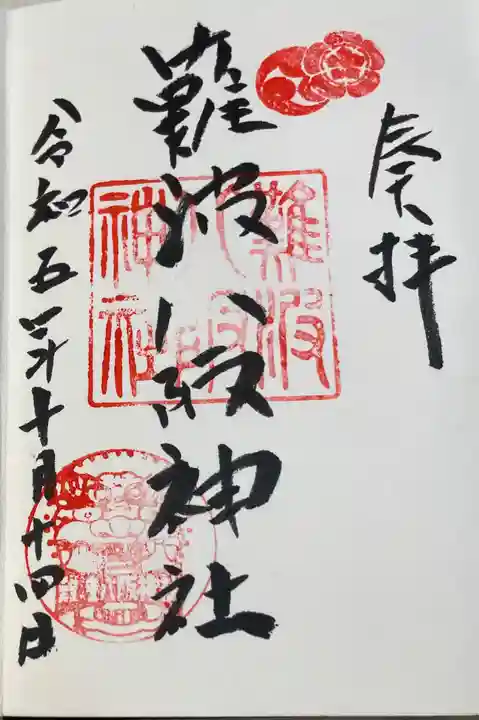 奉拝
難波八阪神社
難波
八阪
神社
令和五年十月十四日